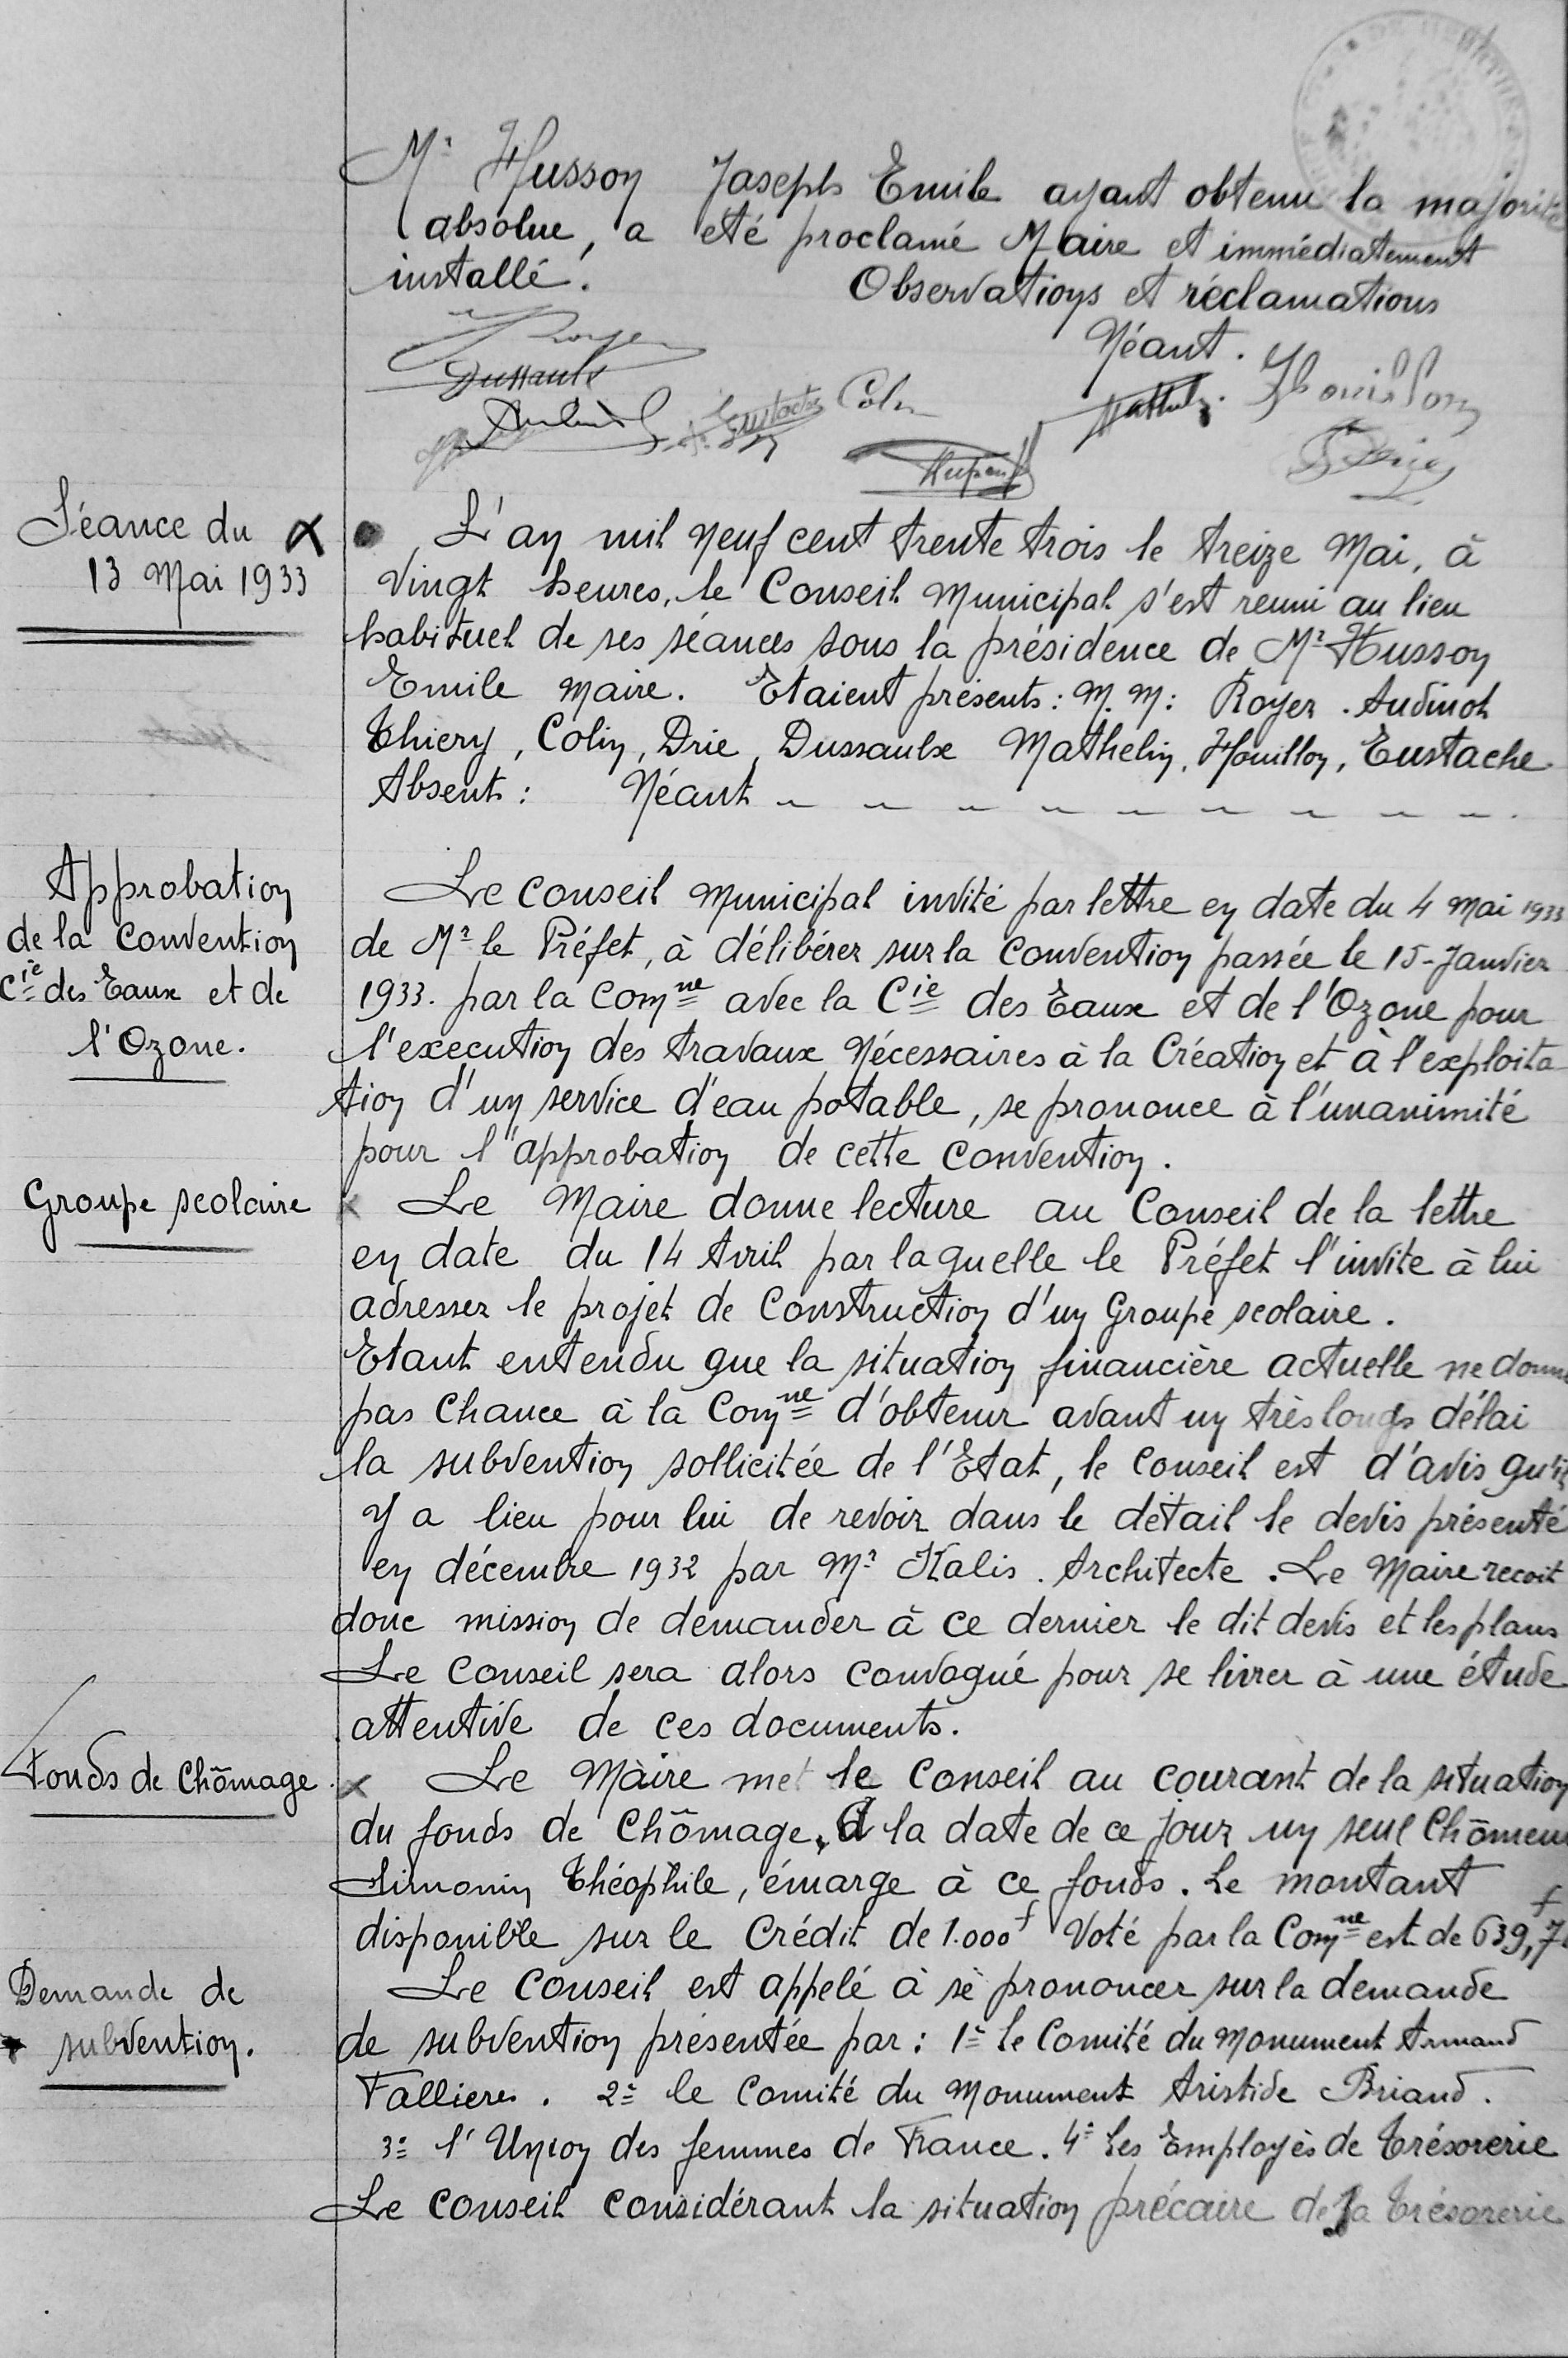 Mr Husson Joseph Emile ayant obtenu la majorité
absolue, a été proclamé Maire et immédiatement
installé.
Observations et réclamations
Néant.
Royer
Dussaulx
Eustache Colin
Mathelin. Houillon
Séance du
13 Mai 1933
L'an mil neuf cent trente trois le treize Mai, à
vingt heures, le Conseil Municipal s'est reuni au lieu
habituel de ses séances sous la présidence de Mr Husson
Emile Maire. Etaient présents : M.M : Royer. Audinot
Thiery, Colin, Drie, Dussaulx Mathelin, Houillon, Eustache
Absent : Néant
Approbation
de la Convention
Cie des Eaux et de
l'Ozone.
Le Conseil Municipal invité par lettre en date du 4 Mai 1933
de Mr le Préfet, à délibérer sur la Convention passée le 15-Janvier
1933. par la Comne avec la Cie des Eaux et de l'Ozone pour
l'execution des travaux Nécessaires à la Création et à l'exploita-
tion d'un service d'eau potable, se prononce à l'unanimité
pour l'approbation de cette Convention.
Groupe scolaire
x Le Maire donne lecture au Conseil de la lettre
en date du 14 Avril par laquelle le Préfet l'invite à lui
adresser le projet de Construction d'un Groupe scolaire.
Etant entendu que la situation financière actuelle ne donne
pas Chance à la Comne d'obtenir avant un très longs délai
la subvention sollicitée de l'Etat, le Conseil est d'avis qu'il
y a lieu pour lui de revoir dans le détail le devis présenté
en décembre 1932 par Mr Kalis. Architecte. Le Maire recoit
donc mission de demander à ce dernier le dit devis et les plans
Le Conseil sera alors convoqué pour se livrer à une étude
attentive de ces documents.
Fonds de Chômage
x Le Maire met le Conseil au courant de la situation
du fonds de Chômage. A la date de ce jour un seul Chômeur
Simonin Théophile, émarge à ce fonds. Le montant
disponible sur le Crédit de 1.000f Voté par la Comne est de 639,7
Demande de
subvention.
Le Conseil est appelé à se prononcer sur la demande
de subvention présentée par : 1º le Comité du Monument Armand
Fallieres. 2º le Comité du Monument Aristide Briand.
3º l'Union des femmes de France. 4º Les Employès de Trésorerie
Le Conseil Considérant la situation précaire de la trésorerie